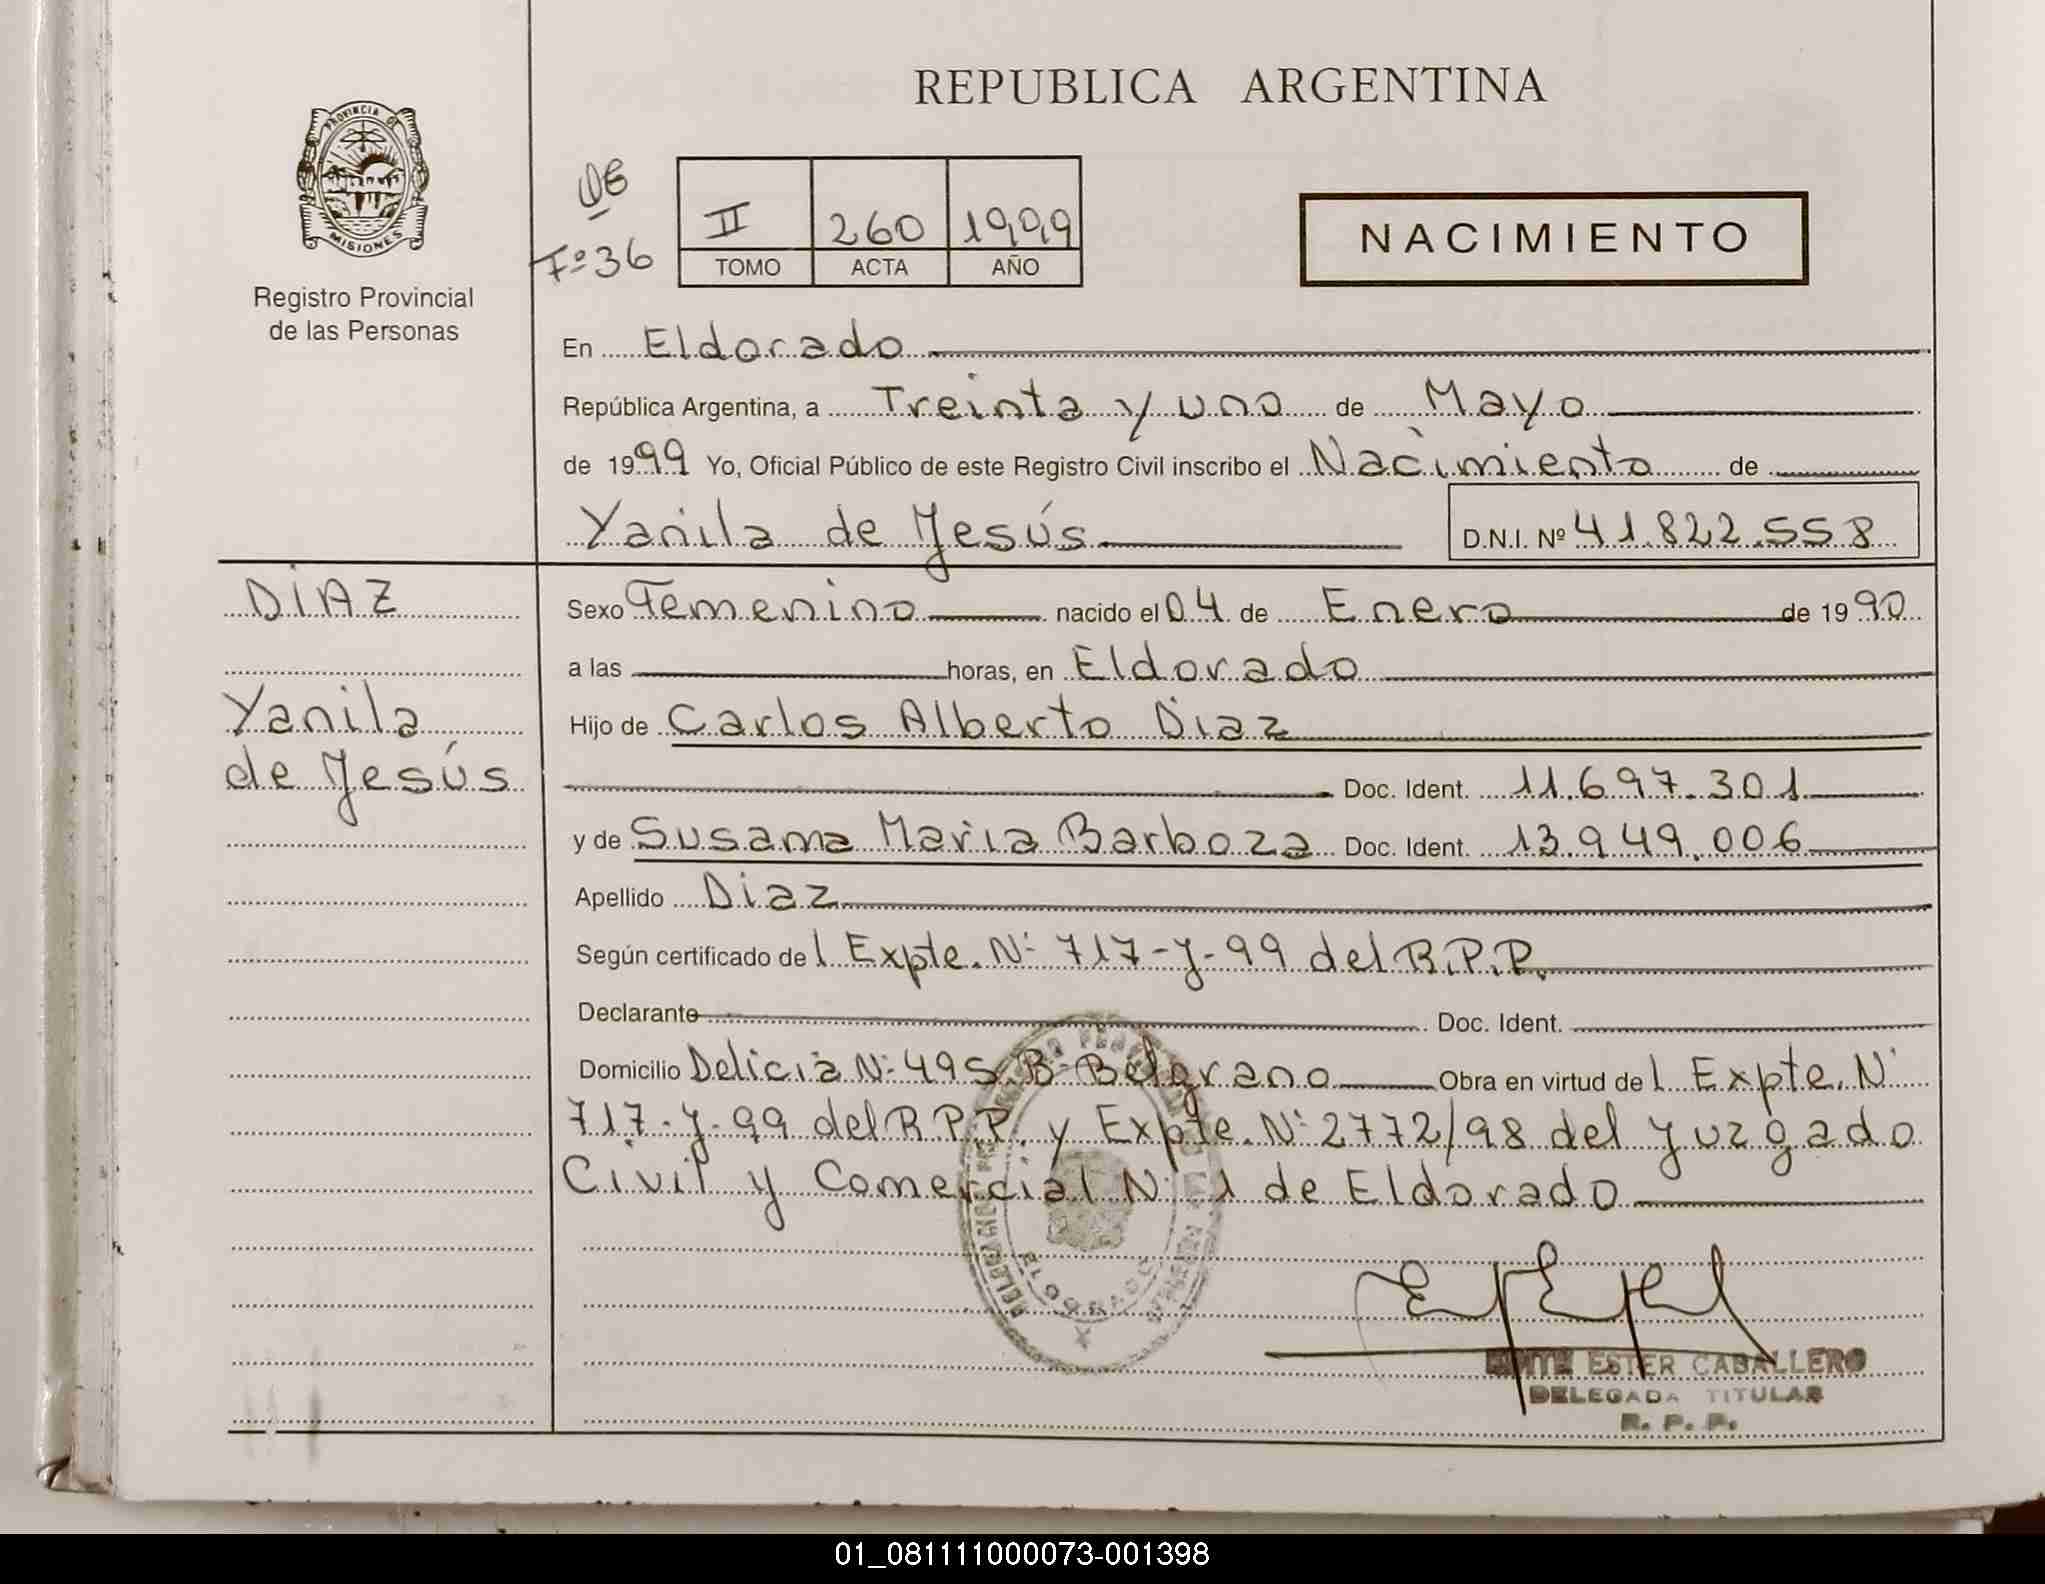 REPUBLICA ARGENTINA
PROVINCIA DE
MISIONES
Registro Provincial
de las Personas
Fº 36
II 260 1999
TOMO ACTA AÑO
NACIMIENTO
En Eldorado
República Argentina, a Treinta y uno de Mayo
de 1999 Yo, Oficial Público de este Registro Civil inscribo el Nacimiento de
Yanila de Jesús D.N.I. Nº 41.822.558
DIAZ
Yanila
de Jesús
Sexo Femenino nacido el 04 de Enero de 1990
a las horas, en Eldorado
Hijo de Carlos Alberto Diaz
Doc. Ident. 11.697.301
y de Susana Maria Barboza Doc. Ident. 13.949.006
Apellido Diaz
Según certificado del Expte. Nº 717-J-99 del R.P.P.
Declarante Doc. Ident.
Domicilio Delicia Nº 495 Bº Belgrano Obra en virtud del Expte. Nº
717-J-99 del R.P.P. y Expte. Nº 2772/98 del Juzgado
Civil y Comercial Nº 1 de Eldorado
ESTER CABALLERO
DELEGADA TITULAR
R. P. P.
01_081111000073-001398